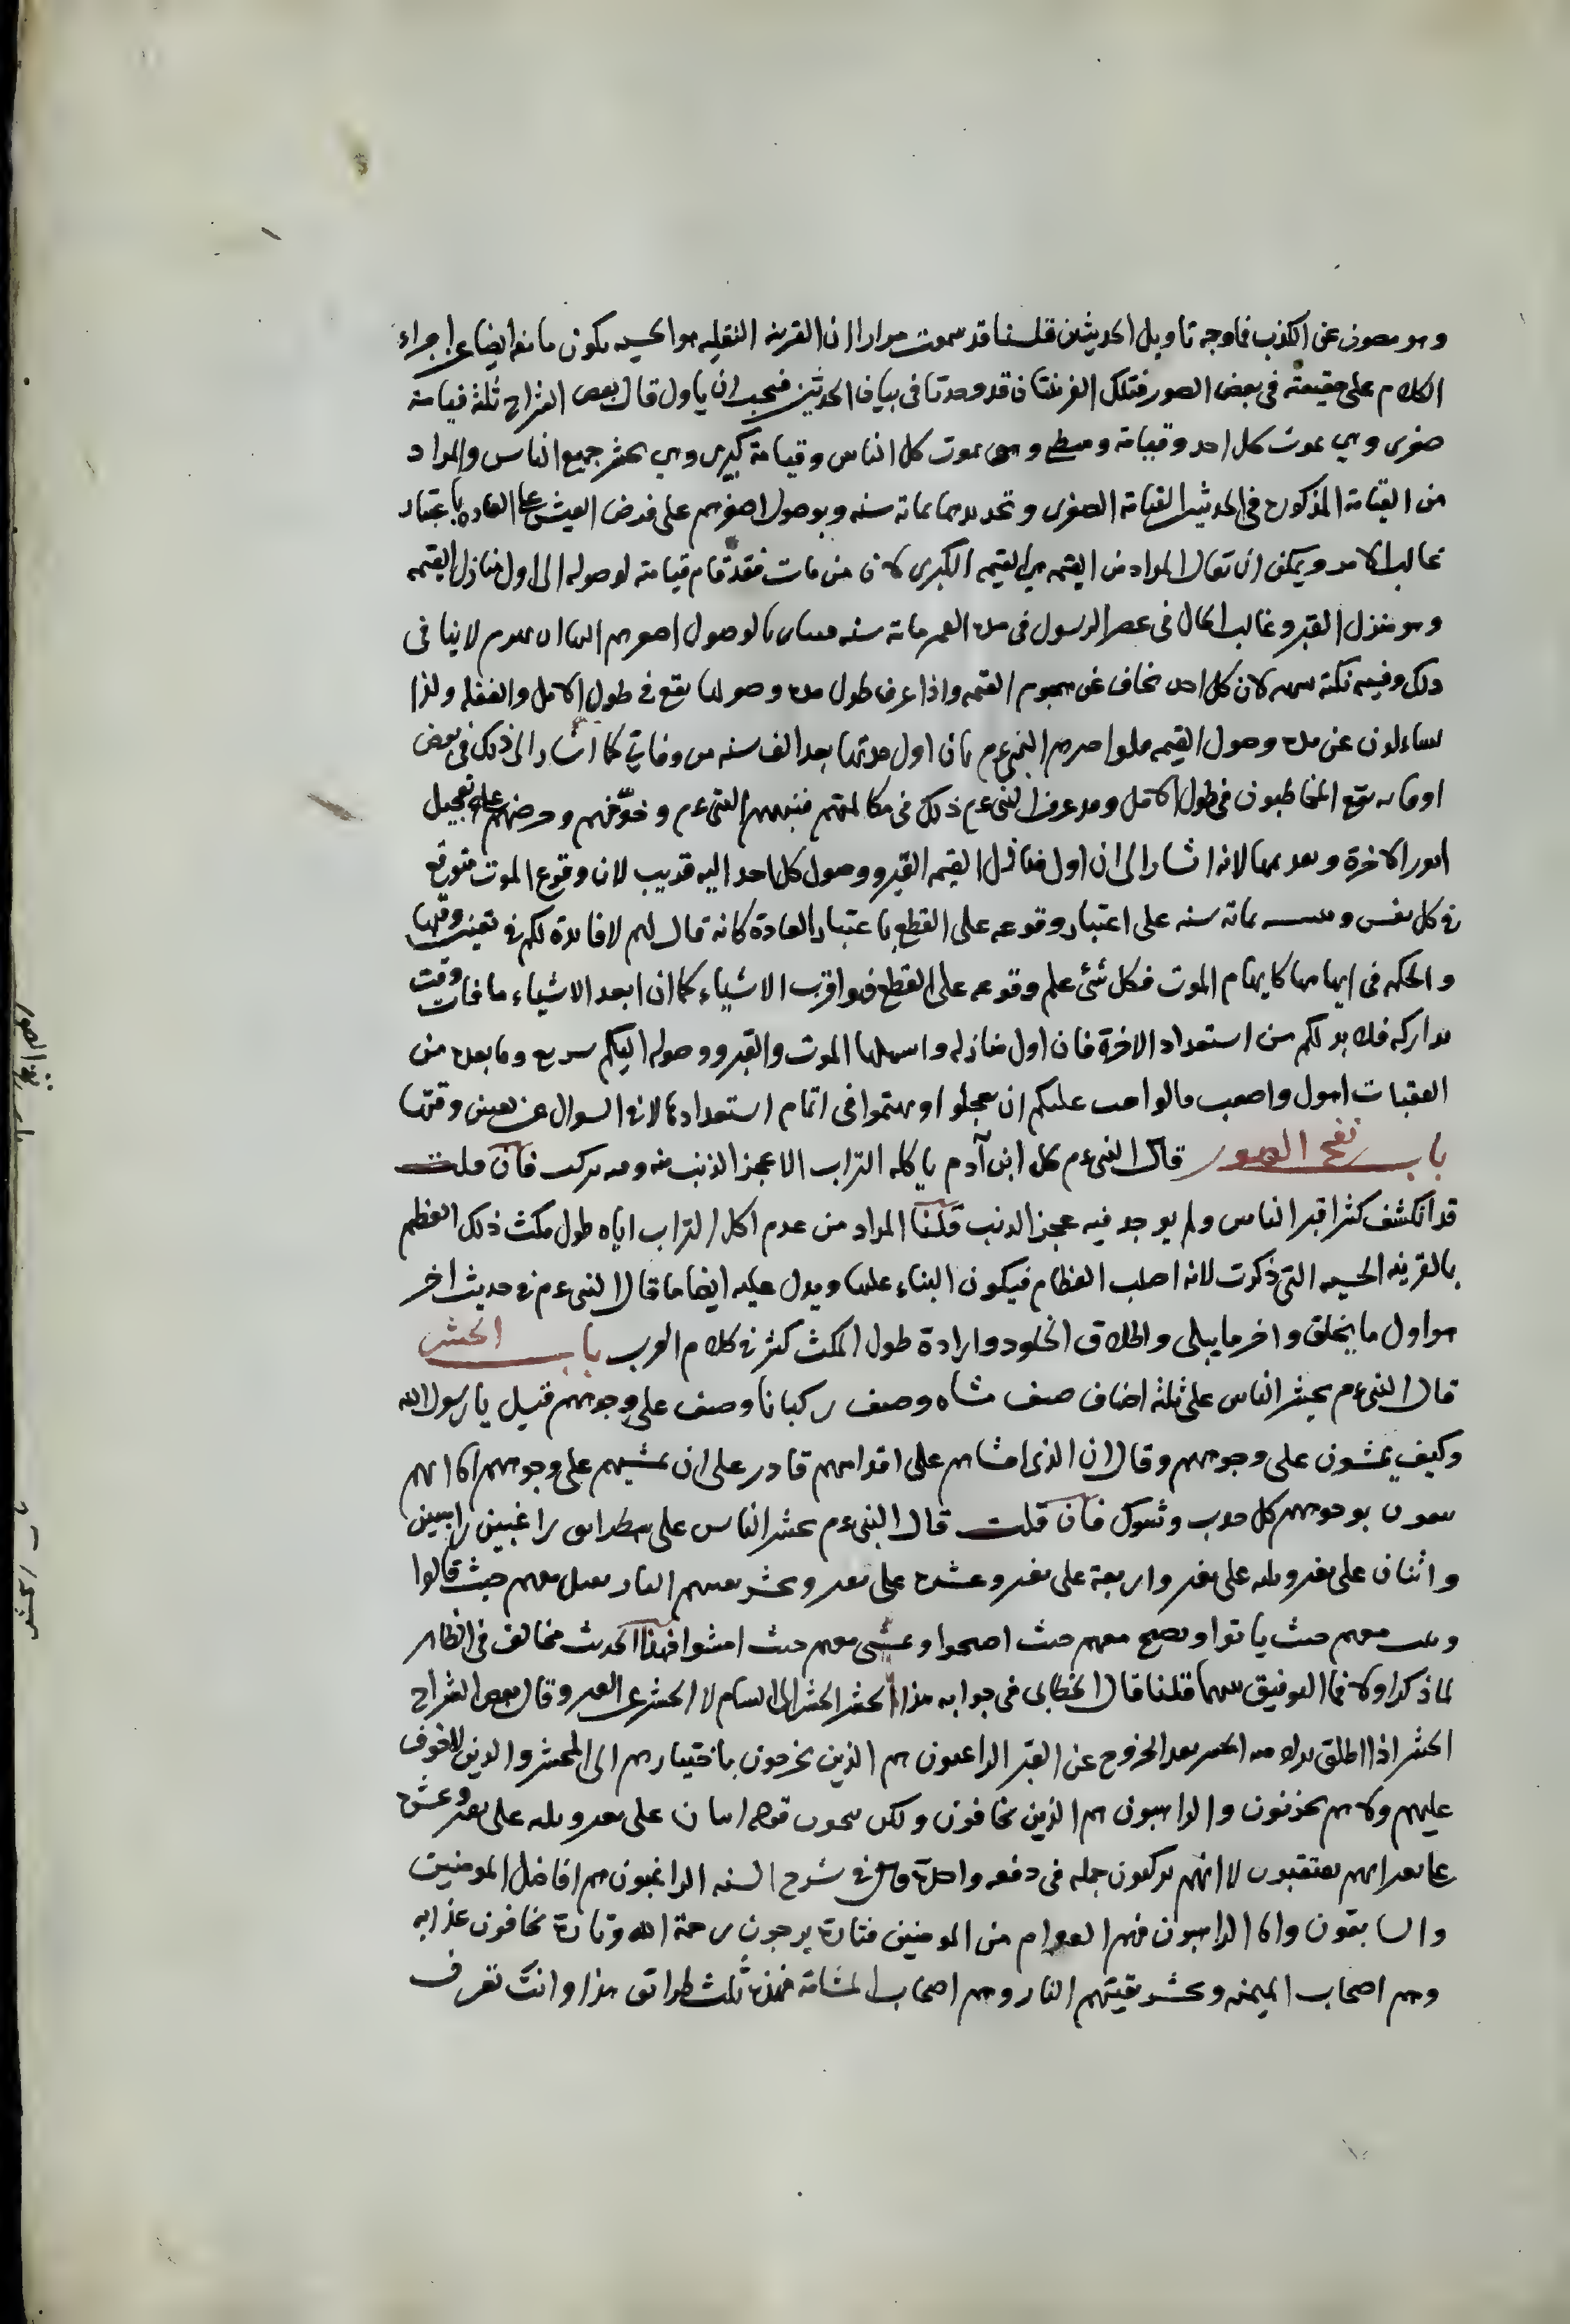 وهو مصون عن الكذب فما وجه تاويل الحديثين قلنا قد سمعت مرارا ان القرينه النقليه هو الحسيه يكون مانعا ايضا عن اجراء
الكلام على حقيقته في بعض الصور فتلك القرينتان قد وجدتا في بيان الحديثين فيجب ان ياول قال بعض الشراح ثلثة قيامة
صغرى وهي بموت كل احد وقيامة وسطى وهي بموت كل الناس وقيامة كبرى وهي بحشر جميع الناس والمراد
من القيامة المذكورة في الحديث القيامة الصغرى وتحديدها بماته سنه وبوصول اصغرهم على فرض العيش على العاده باعتبار
غالب الامر ويمكن ان يقال المراد من القيمه هي القيمه الكبرى لان من مات فقد قام قيامته لوصوله الى اول منازل القيمه
وهو منزل القبر وغالب الحال في عصر الرسول في مدة العمر ماته سنه بالوصول لا ينافي
ذلك وفيه نكتة لان كل احد يخاف عن هجوم القيمه واذا عرف طول مدة وصولها يقع في طول الامل والغفله ولذا
يساءلون عن مدة وصول القيمه النبى عم بان اول مدتها بعد الف سنه من وفاتي كما اشار الى ذلك في بعض
اوقاته يقع المخاطبون في طول الامل وقد عرف النبى عم ذلك في مكالمتهم فنبههم النبى عم وخوّفهم وحرضهم على تعجيل
امور الاخرة لانه اشار الى ان اول منازل القيمه القبر ووصول كل احد اليه قريب لان وقوع الموت متوقع
في كل نفس بماته سنه على اعتبار وقوعه على القطع باعتبار العادة كانه قال لهم لا فايدة لكم في تعيين وقتها
والحكمه في ابهامها كابهام الموت فكل شئ علم وقوعه على القطع فهو اقرب الاشياء كما ان ابعد الاشياء ما فات وقت
تداركه فلا بد لكم من استعداد الاخرة فان اول منازله واسهلها الموت والقبر ووصوله اليكم سريع وما بعده من
العقبات اهول واصعب فالواجب عليكم ان تعجلوا وتهتموا في اتمام استعدادها لا في السوال عن تعيين وقتها
باب نفخ الصور قال النبى عم كل ابن آدم ياكله التراب الا عجز الذنب منه وفيه يركب فان قلت
قد انكشف كثرا قبر الناس ولم يوجد فيه عجز الذنب قلنا المراد من عدم اكل التراب اياه طول مكث ذلك العظم
بالقرينه الحسيه التي ذكرت لانه اصلب العظام فيكون البناء عليها ويدل عليه ايضا ما قال النبى عم في حديث اخر
هو اول ما يخلق واخر ما يبلى واطلاق الخلود وارادة طول المكث كثر في كلام العرب باب الحشر
قال النبى عم يحشر الناس على ثلثة اصناف صنف مشاه وصنف ركبانا وصنف على وجوههم قيل يا رسول الله
وكيف يمشون على وجوههم وقال ان الذى امشاهم على اقدامهم قادر على ان يمشيهم على وجوههم اما انهم
يتقون بوجوههم كل حدب وشوك فان قلت قال النبى عم يحشر الناس على ثلث طرائق راغبين راهبين
واثنان على بعير وثلثه على بعير واربعة على بعير وعشرة على بعير ويحشر بقيتهم النار تقيل معهم حيث قالوا
وتبيت معهم حيث باتوا وتصبح معهم حيث اصبحوا وتمشى معهم حيث امشوا فهذا الحديث مخالف في الظاهر
لما ذكر اولا فما التوفيق بينهما قلنا قال الخطابى في جوابه هذا الحشر الحشر الى الشام لا الحشر عن القبر وقال بعض الشراح
الحشر اذا اطلق يراد منه الحشر بعد الخروج عن القبر الراغبون هم الذين يخرجون باختيارهم الى المحشر والذين لا خوف
عليهم ولا هم يحزنون والراهبون هم الذين يخافون ولكن ينجون قوله اثنان على بعير وثلثه على بعير وعشرة
على بعير انهم يعتقبون لا انهم يركبون جمله في دفعه واحدة وقال في شرح السنه الراغبون هم افاضل المومنين
والسابقون واما الراهبون فهم العوام من المومنين فتارة يرجون رحمة الله وتارة يخافون عذابه
وهم اصحاب الميمنه ويحشر بقيتهم النار وهم اصحاب المشامه فهذه ثلث طرائق هذا وانت تعرف
باب نفخ الصور